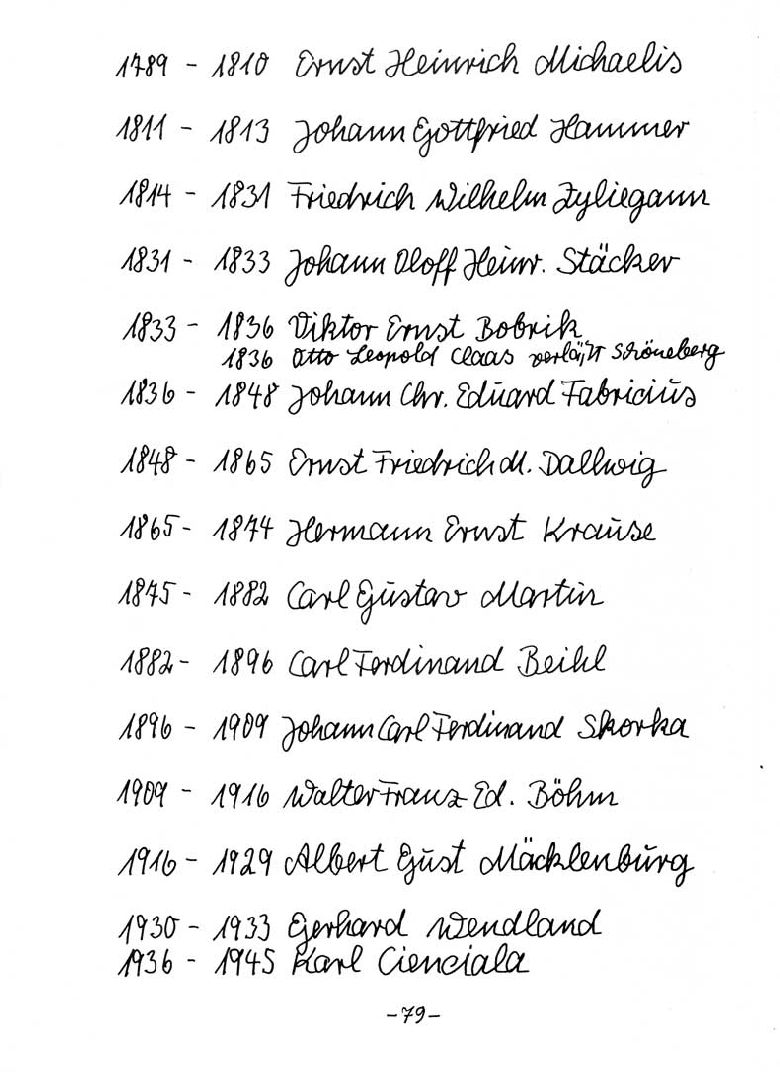 1789 - 1810 Ernst Heinrich Michaelis
1811 - 1813 Johann Gottfried Hammer
1814 - 1831 Friedrich Wilhelm Zyliegann
1831 - 1833 Johann Oloff Heinr. Stäcker
1833 - 1836 Viktor Ernst Bobrik
1836 Otto Leopold Claas verläßt Schöneberg
1836 - 1848 Johann Chr. Eduard Fabricius
1848 - 1865 Ernst Friedrich M. Dallwig
1865 - 1874 Hermann Ernst Krause
1875 - 1882 Carl Gustav Martin
1882 - 1896 Carl Ferdinand Beihl
1896 - 1909 Johann Carl Ferdinand Skorka
1909 - 1916 Walter Franz Ed. Böhm
1916 - 1929 Albert Gust Mäcklenburg
1930 - 1933 Gerhard Wendland
1936 - 1945 Karl Cienciala
-79-